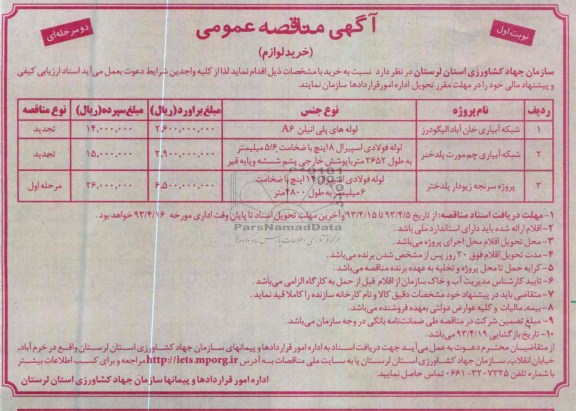 نوبت اول
دو مرحله ای
آگهی مناقصه عمومی
(خرید لوازم)
سازمان جهاد کشاورزی استان لرستان در نظر دارد نسبت به خرید با مشخصات ذیل اقدام نماید لذا از کلیه واجدین شرایط دعوت بعمل می آید اسناد ارزیابی کیفی
و پیشنهاد مالی خود را در مهلت مقرر تحویل اداره امور قراردادها سازمان نمایند
ردیف نام پروژه نوع جنس مبلغ براورد (ریال) مبلغ سپرده (ریال) نوع مناقصه
۱ شبکه آبیاری خان آباد الیگودرز لوله های پلی اتیلن A۶ ۲,۶۰۰,۰۰۰,۰۰۰ ۱۴,۰۰۰,۰۰۰ تجدید
۲ شبکه آبیاری چم مورت پلدختر لوله فولادی اسپیرال ۱۸ اینچ با ضخامت ۵/۶ میلیمتر
به طول ۲۶۵۲ متر با پوشش خارجی پشم شیشه و پایه قیر ۲,۹۰۰,۰۰۰,۰۰۰ ۱۵,۰۰۰,۰۰۰ تجدید
۳ پروژه سرنجه زیودار پلدختر لوله فولادی اسپیرال ۱۴ اینچ با ضخامت
۶ میلیمتر به طول ۴۸۰۰ متر ۶,۵۰۰,۰۰۰,۰۰۰ ۲۶,۰۰۰,۰۰۰ مرحله اول
۱- مهلت دریافت اسناد مناقصه: از تاریخ ۹۳/۴/۵ تا ۹۳/۴/۱۵ و آخرین مهلت تحویل اسناد تا پایان وقت اداری مورخه ۹۳/۴/۱۶ خواهد بود.
۲- اقلام ارائه شده باید دارای استاندارد ملی باشد.
۳- محل تحویل اقلام محل اجرای پروژه می باشد.
۴- مدت تحویل اقلام فوق ۲۰ روز پس از مشخص شدن برنده می باشد.
۵- کرایه حمل تا محل پروژه و تخلیه به عهده برنده مناقصه می باشد.
۶- تایید کارشناس مدیریت آب و خاک سازمان از اقلام قبل از حمل به کارگاه الزامی می باشد.
۷- متقاضی باید در پیشنهاد خود مشخصات دقیق کالا و نام کارخانه سازنده را کاملا قید نماید.
۸- بیمه، مالیات و کلیه عوارض دولتی بعهده فروشنده می باشد.
۹- مبلغ تضمین شرکت در مناقصه طی ضمانت‌نامه بانکی در وجه سازمان می باشد.
۱۰- تاریخ بازگشایی ۹۳/۴/۱۹ می باشد.
از متقاضیان محترم دعوت به عمل می آید جهت دریافت اسناد به اداره امور قراردادها و پیمانهای سازمان جهاد کشاورزی استان لرستان واقع در خرم آباد،
خیابان انقلاب، سازمان جهاد کشاورزی استان لرستان یا به سایت ملی مناقصات به آدرس http://iets.mporg.ir مراجعه و برای کسب اطلاعات بیشتر
با شماره تلفن ۷۳۲۵-۳۲۰-۰۶۶۱ تماس حاصل نمایند.
اداره امور قراردادها و پیمانها سازمان جهاد کشاورزی استان لرستان
ParsNamadData